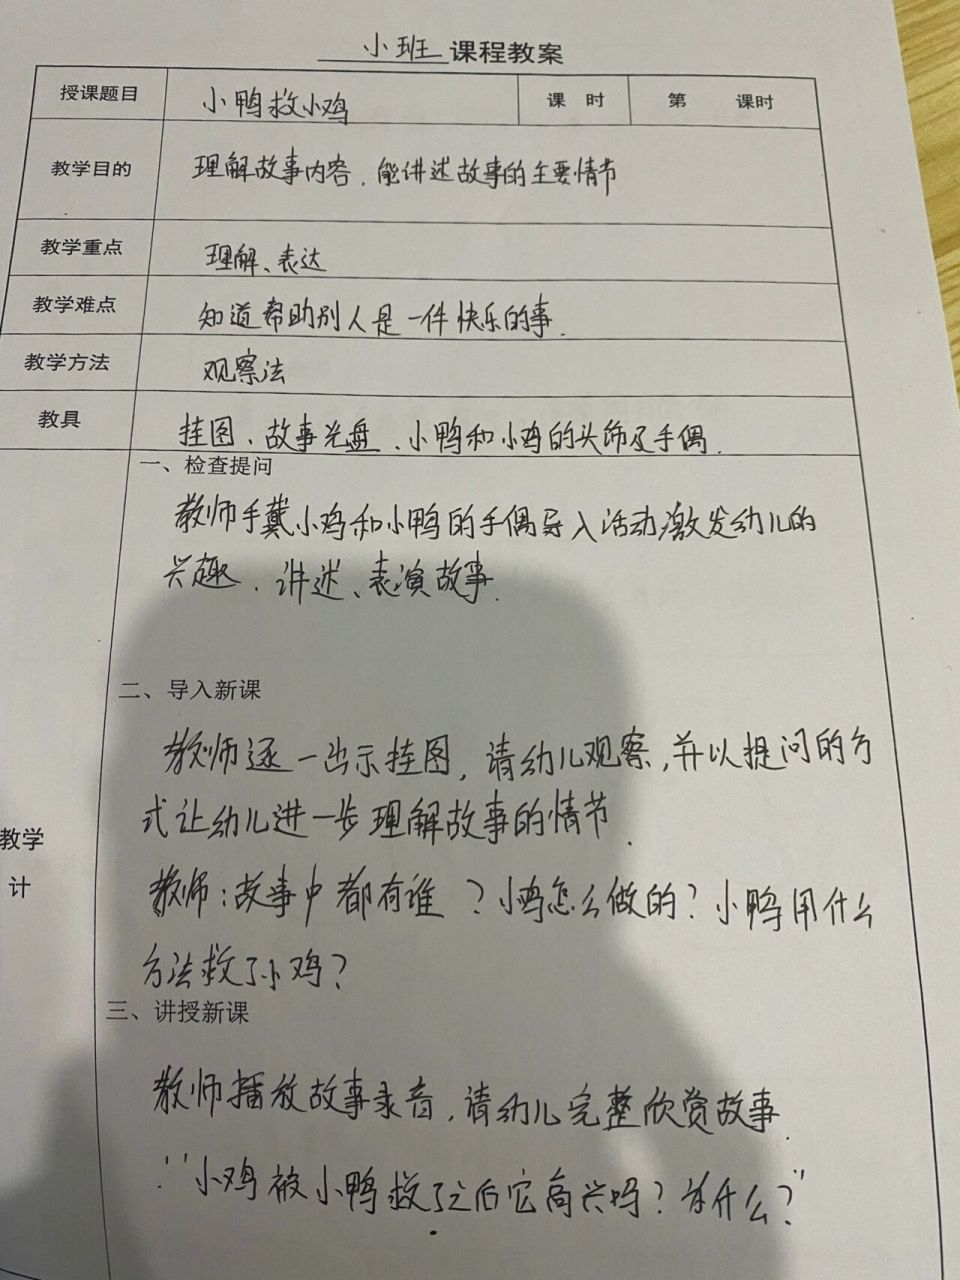 小班 课程教案
授课题目 小鸭救小鸡 课 时 第 课时
教学目的 理解故事内容，能讲述故事的主要情节
教学重点 理解、表达
教学难点 知道帮助别人是一件快乐的事.
教学方法 观察法
教具 挂图、故事光盘、小鸭和小鸡的头饰及手偶.
一、检查提问
教师手戴小鸡和小鸭的手偶导入活动激发幼儿的
兴趣、讲述、表演故事.
二、导入新课
教师逐一出示挂图，请幼儿观察,并以提问的方
式让幼儿进一步理解故事的情节.
教学
计
教师:故事中都有谁？小鸡怎么做的？小鸭用什么
方法救了小鸡？
三、讲授新课
教师播放故事录音，请幼儿完整欣赏故事.
:"小鸡被小鸭救了之后它高兴吗？为什么？"